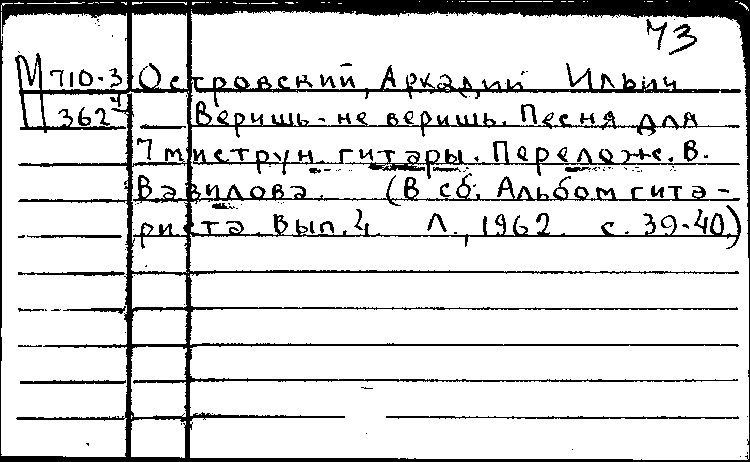 73
М 710-3 Островский, Аркадий Ильич
П 362 Веришь-не веришь. Песня для
7миструн. гитары. Перелож. В.
Вавилова. (В сб. Альбом гита-
риста. Вып. 4 Л., 1962. с. 39-40)